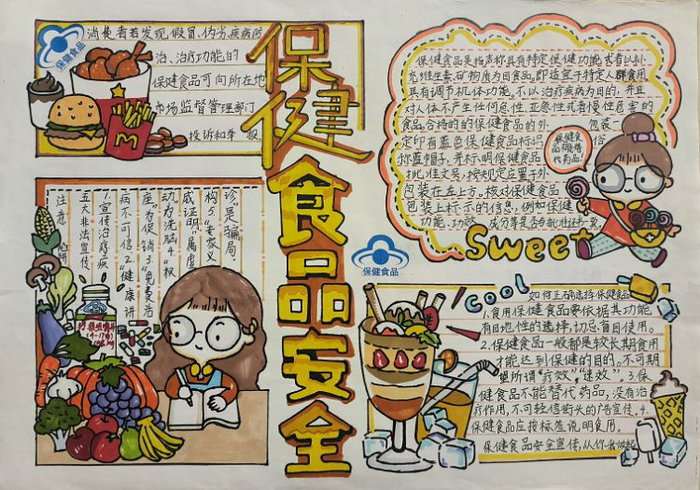 消费者若发现假冒、伪劣疾病防
治、治疗功能的
保健食品可向所在地
市场监督管理部门
投诉和举报
保健食品
保健食品安全
注意
五大非法宣传
1.宣传治疗疾
病不可信2."健康讲
座"为促销3."免费治
动"为洗脑4."权
威证明"属虚
构5."专家义
诊"是骗局
保健食品是指声称具有特定保健功能或者以补
充维生素、矿物质为目的食品。即适宜于特定人群食用
具有调节机体功能。不以治疗疾病为目的,并且
对人体不产生任何急性、亚急性或者慢性危害的
食品。合格的的保健食品的外包装
定印有蓝色保健食品标识
称蓝帽子,并标明保健食品
批准文号,按规定应置于外
包装在左上方。核对保健食品
包装上标示的信息,例如保健
功能、功效成分
Sweet
保健食品
cool
如何正确选择保健食品
1.食用保健食品要依据其功能
有目地性的选择,切忌盲目使用。
2.保健食品一般都是较长期食用
才能达到保健的目的。不可期
望所谓"疗效""速效"。3.保
健食品不能替代药品,没有治
疗作用,不可轻信街头的广告宣传。4.
保健食品应按标签说明食用。
保健食品安全宣传,从你我做起